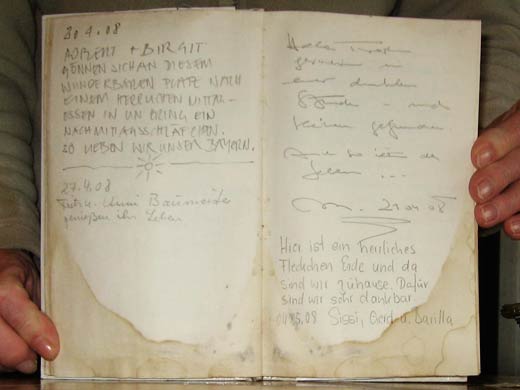 30.4.08
ALBERT + BIRGIT
GÖNNEN SICH AN DIESEM
WUNDERBAREN PLATZ NACH
EINEM HERRLICHEN MITTAG-
ESSEN IN EIN
NACHMITTAGSSCHLÄFCHEN.
SO LIEBEN WIR UNSER BAYERN.
27.4.08
Fritz u. Anni Baumeister
genießen ihr Leben
einer dunklen
Stunde - und
gefunden
Leben ...
29.04.08
Hier ist ein herrliches
Fleckchen Erde und da
sind wir zuhause. Dafür
sind wir sehr dankbar
04.05.08 Sissi, Gerd u. Darilla